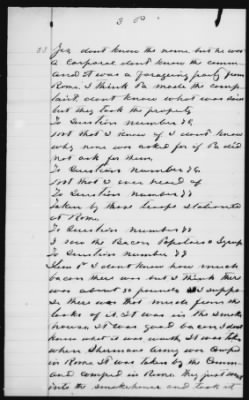 3 P.
33 Yes dont know the name but he was
a Corporal dont know the comm
and it was a foraging party from
Rome. I think Pa made the comp
laint dont know what was said
but they took the property
To Question number 36
not that I know of I dont know
why none was asked for if Pa did
not ask for them,
To Question number 36
not that I ever heard of
To Question number 37
taken by these troops stationed
at Rome
To Question number
I saw the Bacon Potatoes & Syrup
To Question number 77
Item 1st I dont know how much
bacon there was but I think there
was about pounds I suppose
so there was that much from the
looks of it. It was in the smoke
house. It was good bacon I dont
know what it was worth It was taken
when Shermans Army was camped
in Rome It was taken by the Comm
and camped in Rome they just went
into the smokehouse and took it